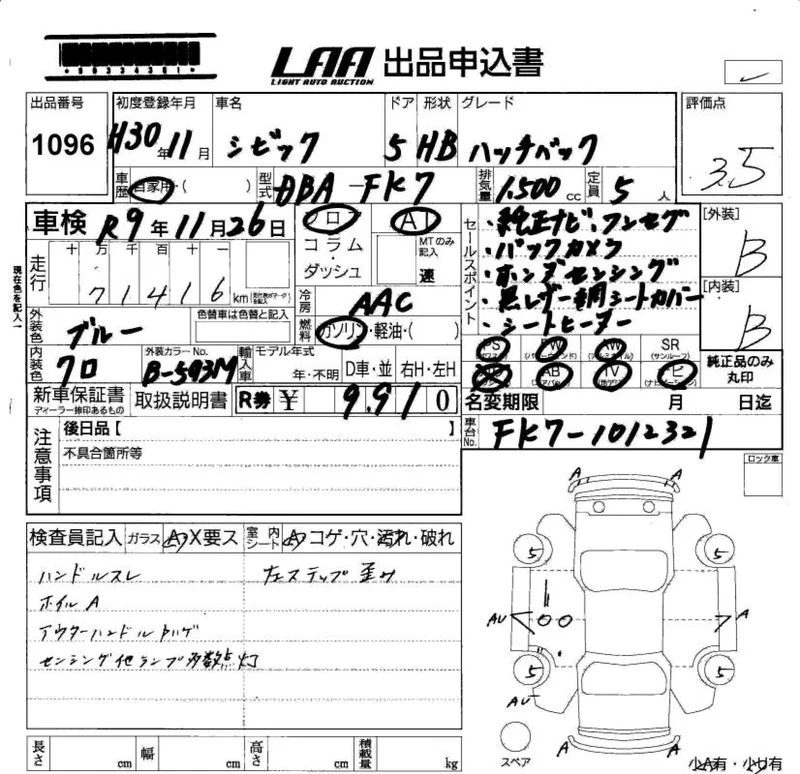 LAA 出品申込書
LIGHT AUTO AUCTION
出品番号 初度登録年月 車名 ドア 形状 グレード 評価点
1096 H30年11月 シビック 5 HB ハッチバック 3.5
車歴 自家用・( ) 型式 DBA-FK7 排気量 1.500cc 定員 5人
車検 R9年11月26日 フロア AT セールスポイント ・純正ナビ、フルセグ [外装]
走行 十 万 千 百 十 一 コラム・ MTのみ記入 ・バックカメラ B
71416km ダッシュ 速 ・ホンダセンシング [内装]
現在色を記入 冷房 AAC ・黒レザー調シートカバー B
外装色 ブルー 色替車は色替と記入 燃料 ガソリン・軽油・( ) ・シートヒーター
PS PW AW SR
(サンルーフ)
内装色 クロ 外装カラーNo. B-593M 輸入車 モデル年式 年・不明 D車・並 右H・左H AB TV ナビ 純正品のみ丸印
新車保証書 取扱説明書 R券 ¥ 9.910 名変期限 月 日迄
ディーラー捺印あるもの
注意事項 後日品【 】 車台No. FK7-1012321
不具合箇所等
ロック車
検査員記入 ガラス A・X要ス 室内シート A コゲ・穴・汚れ・破れ
ハンドルスレ 左ステップ歪み
ホイルA
アウターハンドルハゲ
センシング他ランプ多数点灯
A A
5 5
AU A
5 5
AU
A A
スペア
長さ cm 幅 cm 高さ cm 積載量 kg 少A有・少U有